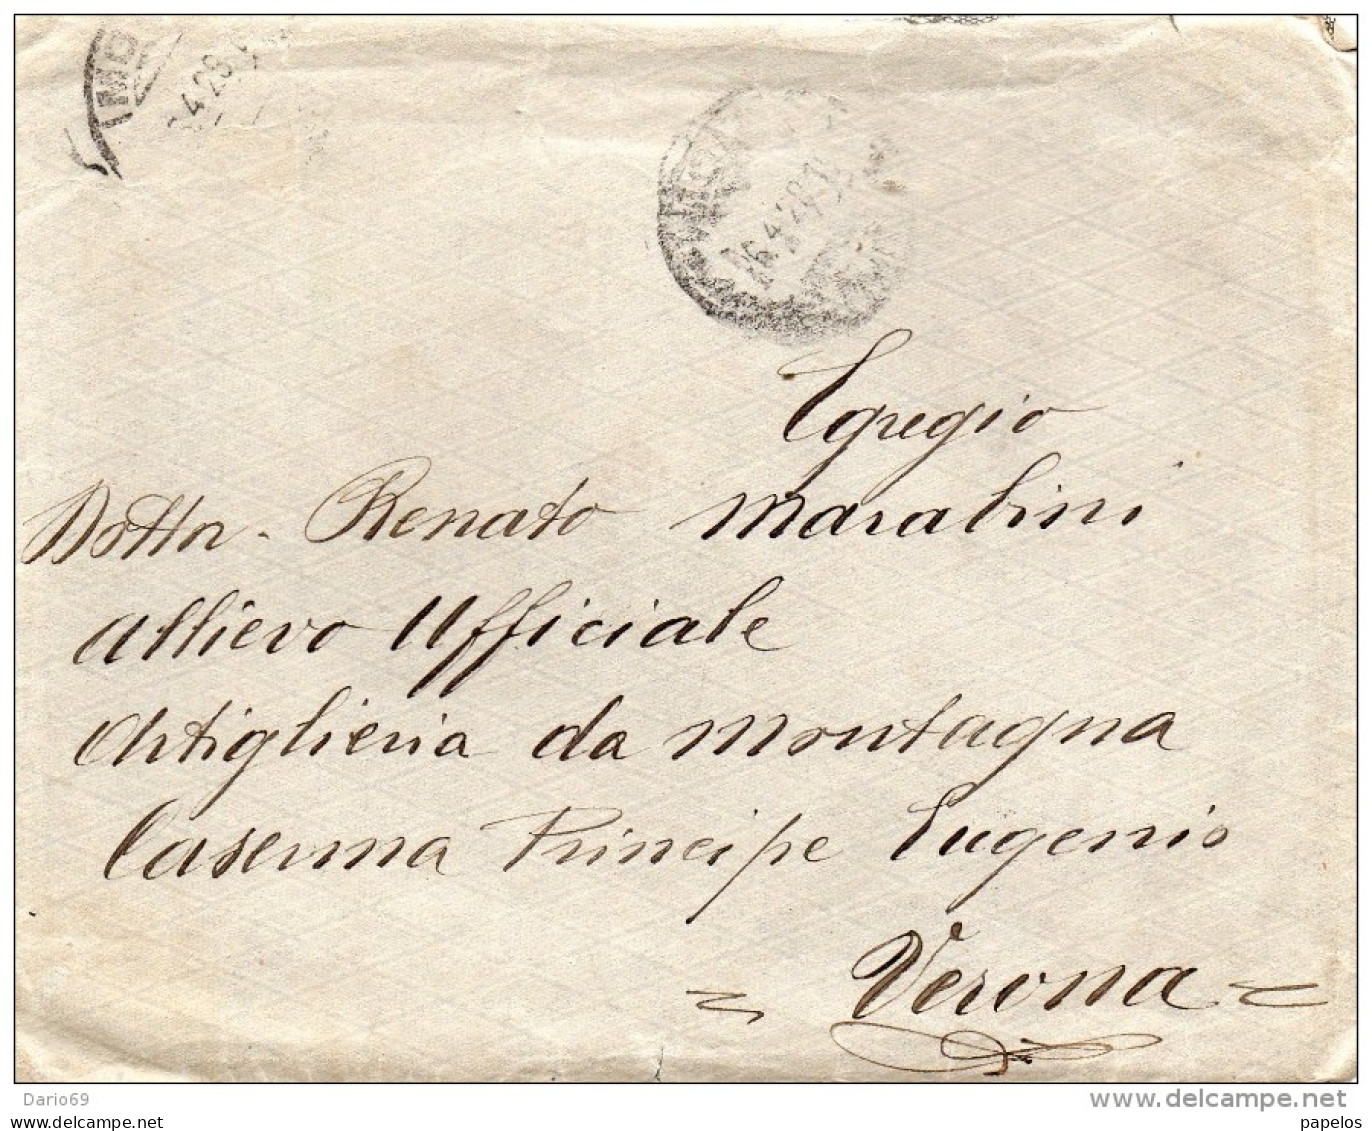 4.28
6.4.28
Egregio
Dottor. Renato Marabini
Allievo Ufficiale
Artiglieria da Montagna
Caserma Principe Eugenio
= Verona =
Dario69
www.delcampe.net
papelos